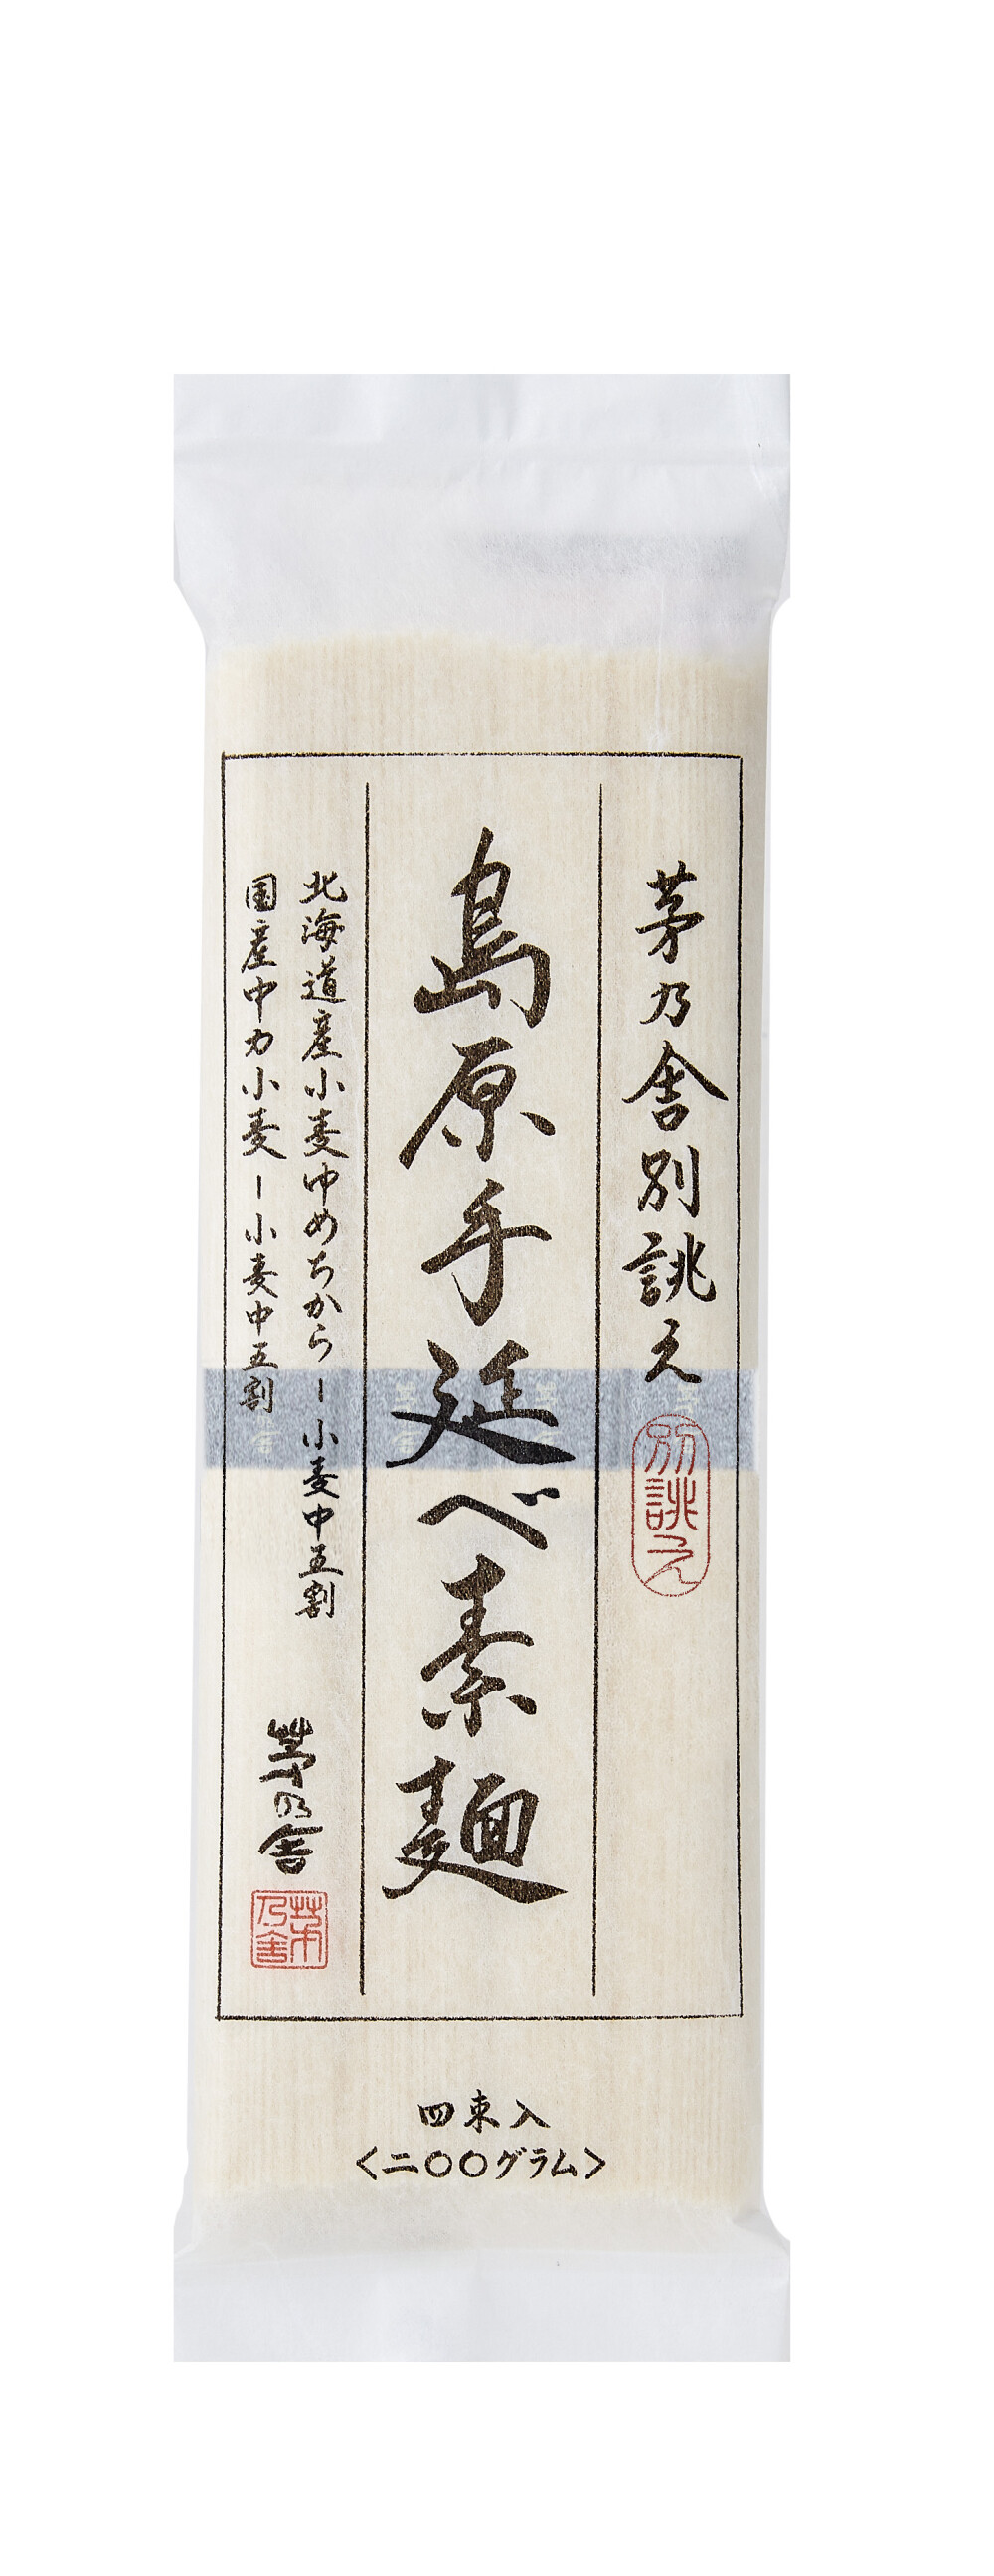 茅乃舎別誂え
別誂え
島原手延べ素麺
北海道産小麦ゆめちから―小麦中五割
国産中力小麦―小麦中五割
茅乃舎
茅乃舎
四束入
〈二〇〇グラム〉